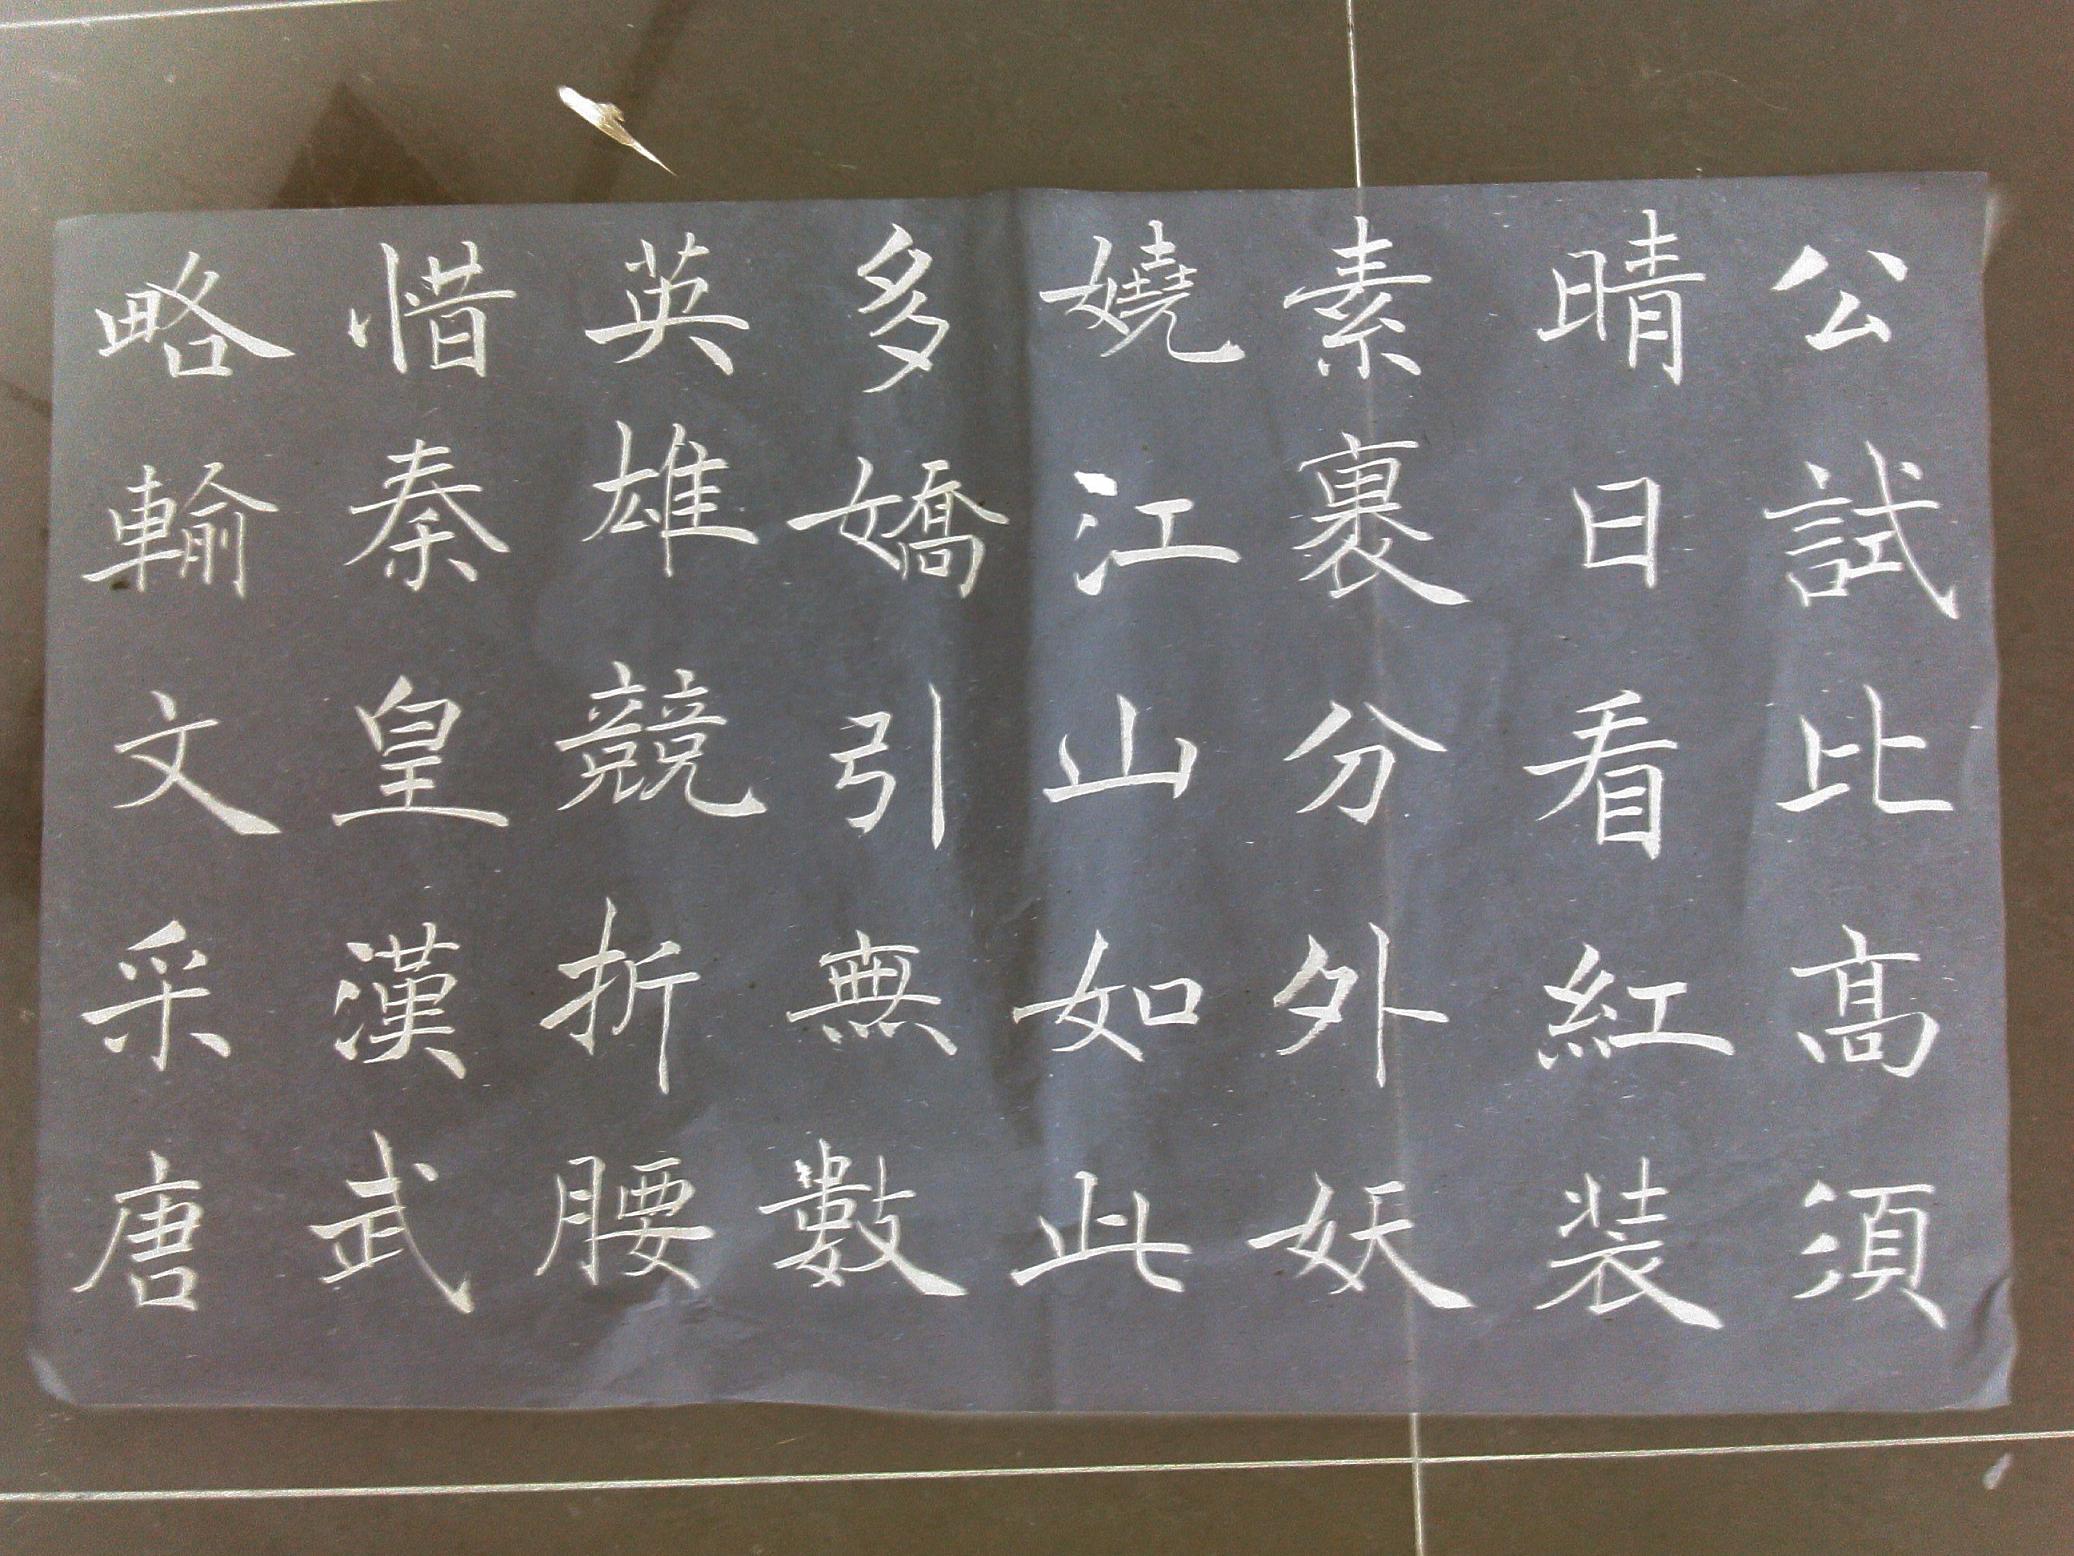 公試比高須
晴日看紅装
素裹分外妖
嬈江山如此
多嬌引無數
英雄競折腰
惜秦皇漢武
略輸文采唐